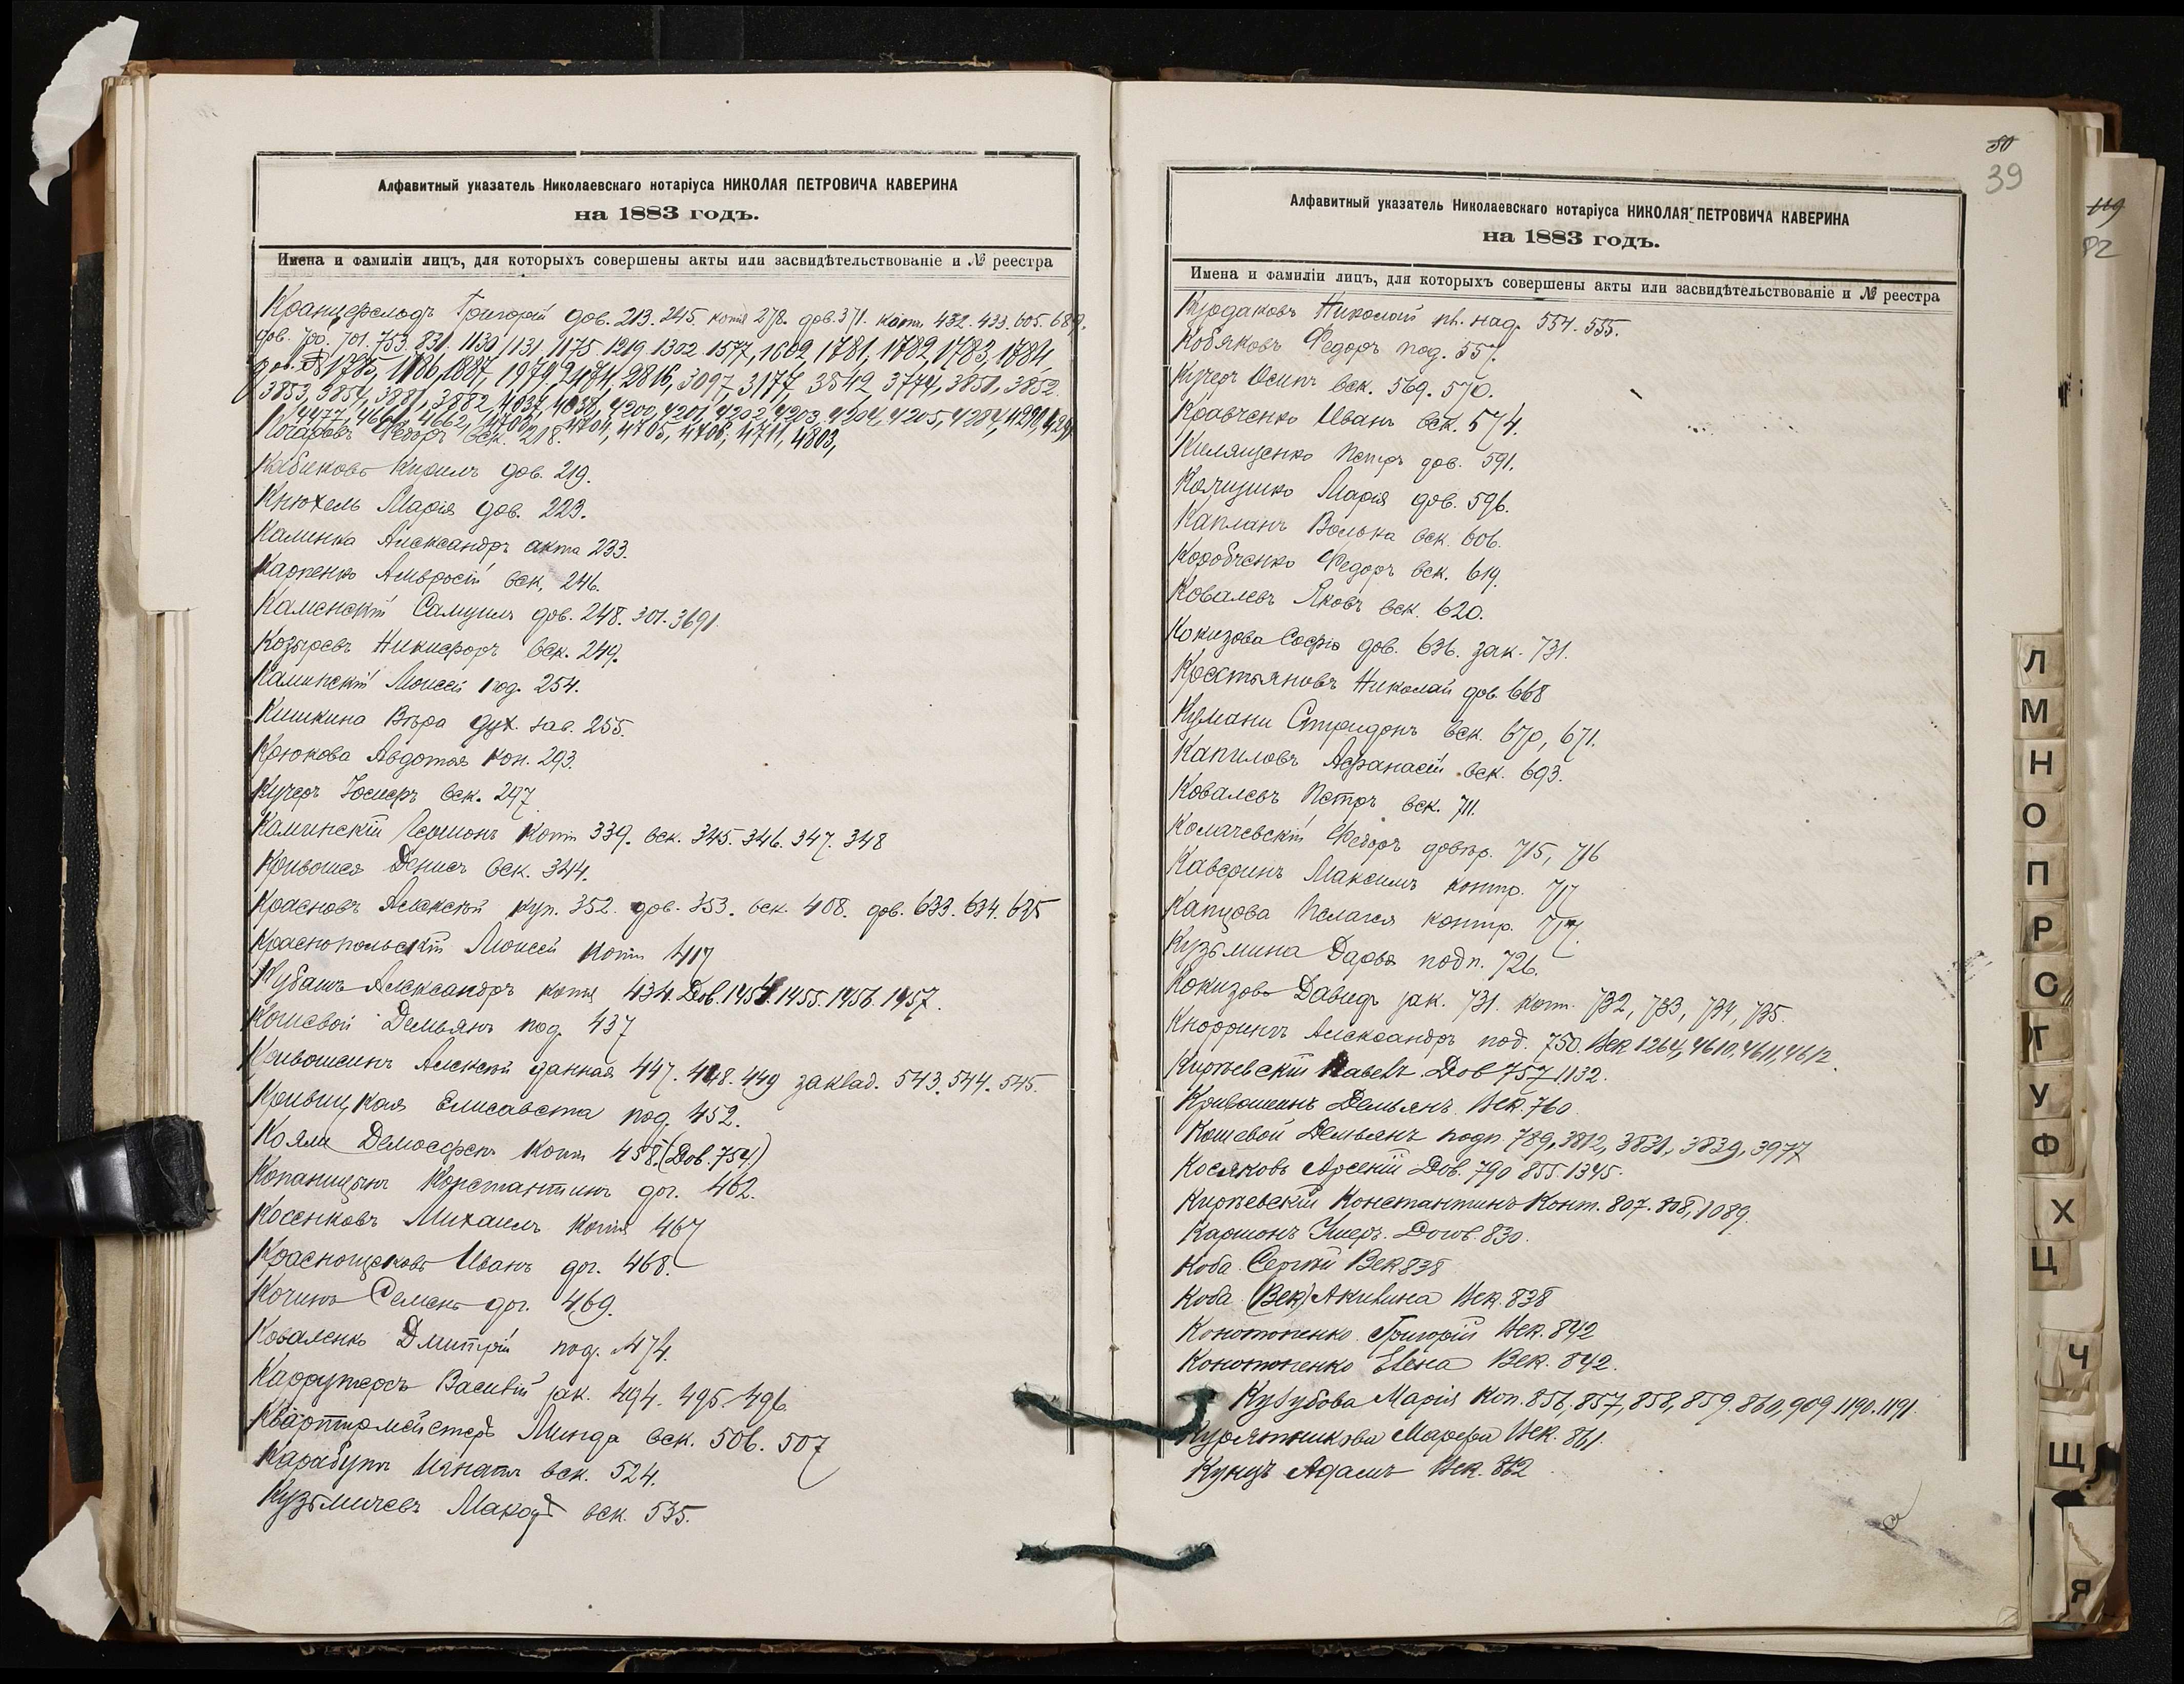 Алфавитный указатель Николаевскаго нотаріуса НИКОЛАЯ ПЕТРОВИЧА КАВЕРИНА
на 1883 годъ.
Имена и фамиліи лицъ, для которыхъ совершены акты или засвидѣтельствованіе и № реестра
Григорій дов. 213. 245. копія 278. дов. 371. копіи 432. 433. 605. 689.
дов. 700. 701. 753. 831. 1130 1131. 1175. 1219. 1302. 1577, 1602, 1781, 1782, 1783, 1784,
1785, 1886, 1887, 1979, 2816, 3097, 3177, 3542, 3774, 3851, 3852.
3853, 3854, 3881, 3882, 4037, 4038, 4200, 4201, 4202, 4203, 4204, 4205, 4284, 4290,
4477, 4661, 4662, 4704, 4705, 4708, 4711, 4803,
Федоръ век. 218.
Кабиковъ Кирилъ дов. 219.
Кнюхель Марія дов. 223.
Калинка Александръ акта 233.
Карпенко Амвросій век. 246.
Каменскій Самуилъ дов. 248. 301. 3691.
Козыревъ Никифоръ век. 249.
Каминскій Моисей под. 254.
Кишкина Вѣра дух. зав. 255.
Крюкова Авдотья коп. 293.
Кучеръ Іосифъ век. 297
Каминскій копія 339. век. 345. 346. 347. 348
Кривошея Денисъ век. 344.
Красновъ Алексѣй куп. 352. дов. 353. век. 408. дов. 633. 634. 635
Краснопольскій Моисей копія 417
Кубашъ Александръ копія 434. Дов. 1454. 1455. 1456. 1457.
Кошевой Демьянъ под. 437
Кривошеинъ Алексѣй данная 447. 448. 449 заклад. 543. 544. 545.
Кривицкая Елисавета под. 452.
Демосфенъ копія 458. (Дов. 754.)
Копаницынъ Константинъ дог. 462.
Косенковъ Михаилъ копія 467
Краснощековъ Иванъ дог. 468.
Кочинъ Семенъ дог. 469.
Коваленко Дмитрій под. 474.
Каррутерсъ Василій зак. 494. 495. 496
Квартирмейстеръ Минда век. 506. 507
Карабутъ Игнатъ век. 524.
Кузьмичевъ Макаръ век. 535.
50
39
Алфавитный указатель Николаевскаго нотаріуса НИКОЛАЯ ПЕТРОВИЧА КАВЕРИНА
на 1883 годъ.
Имена и фамиліи лицъ, для которыхъ совершены акты или засвидѣтельствованіе и № реестра
Курдаковъ Николай над. 554. 555.
Кобяковъ Федоръ под. 557.
Кучеръ Осипъ век. 569. 570.
Кравченко Иванъ век. 574.
Килященко Петръ дов. 591.
Марія дов. 596.
Капланъ Волька век. 606.
Коробченко Федоръ век. 619.
Ковалевъ Яковъ век. 620.
Кокизова Софія дов. 636. зак. 731.
Крестьяновъ Николай дов. 668
Кумани Спиридонъ век. 670, 671.
Капиловъ Афанасій век. 693.
Ковалевъ Петръ век. 711.
Колачевскій Федоръ довѣр. 715, 716
Каверинъ Максимъ контр. 717
Капцова Пелагея контр. 717.
Кузьмина Дарья подп. 726.
Кокизовъ Давидъ зак. 731. коп. 732, 733, 734, 735.
Кноррингъ Александръ под. 750. Век 1264, 4610, 4611, 4612.
Кирьевскій Павелъ Дов 757 1132.
Кривошеинъ Демьянъ Век. 760
Кошевой Демьянъ подп. 789, 3812, 3831, 3839, 3977
Косяковъ Арсеній Дов. 790 855. 1345.
Кирьевскій Константинъ Конт. 807. 808, 1089.
Довѣ. 830.
Коба Сергѣй Век 838
Коба (Век) Акилина Век. 838
Конотопенко Григорій Век. 842
Конотопенко Елена Век. 842.
Кузубова Марія Коп. 856, 857, 858, 859. 860, 909 1190. 1191.
Курятникова Марфа Век. 861.
Кунцъ Адамъ Век. 862
119
82
Л
М
Н
О
П
Р
С
Т
У
Ф
Х
Ц
Ч
Щ
Я